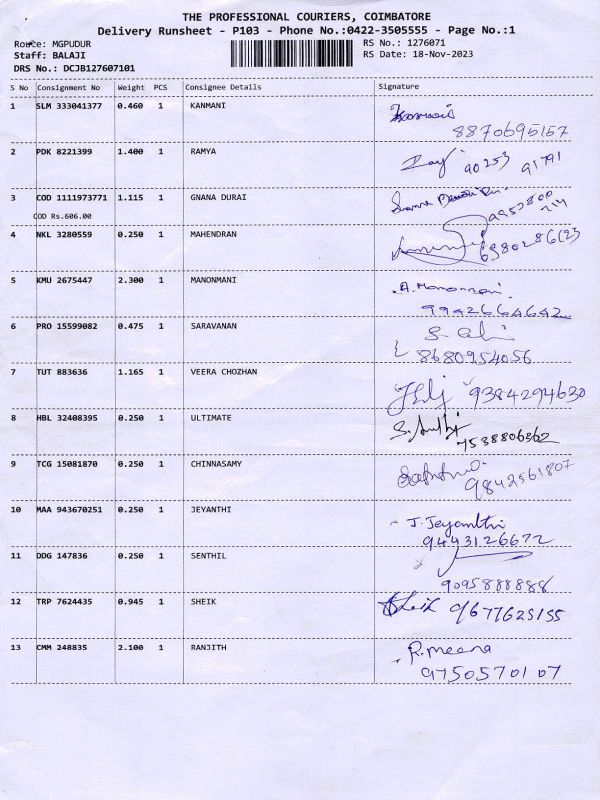 THE PROFESSIONAL COURIERS, COIMBATORE
Delivery Runsheet - P103 - Phone No.:0422-3505555 - Page No.:1
Route: MGPUDUR
RS No.: 1276071
Staff: BALAJI
RS Date: 18-Nov-2023
DRS No.: DCJB127607101
S No Consignment No Weight PCS Consignee Details Signature
1 SLM 333041377 0.460 1 KANMANI
8870695157
2 PDK 8221399 1.400 1 RAMYA
90253 91791
3 COD 1111973771 1.115 1 GNANA DURAI
COD Rs.606.00
4 NKL 3280559 0.250 1 MAHENDRAN
6380286123
5 KMU 2675447 2.300 1 MANONMANI A. Manonmani
9942664642
6 PRO 15599082 0.475 1 SARAVANAN
8680954056
7 TUT 883636 1.165 1 VEERA CHOZHAN 9384294630
8 HBL 32408395 0.250 1 ULTIMATE
7538806362
9 TCG 15081870 0.250 1 CHINNASAMY
9842561807
10 MAA 943670251 0.250 1 JEYANTHI J. Jeyanthi
9443126672
11 DDG 147836 0.250 1 SENTHIL
9095888888
12 TRP 7624435 0.945 1 SHEIK Sheik 9677625155
13 CMM 248835 2.100 1 RANJITH R. Meena
9750570107